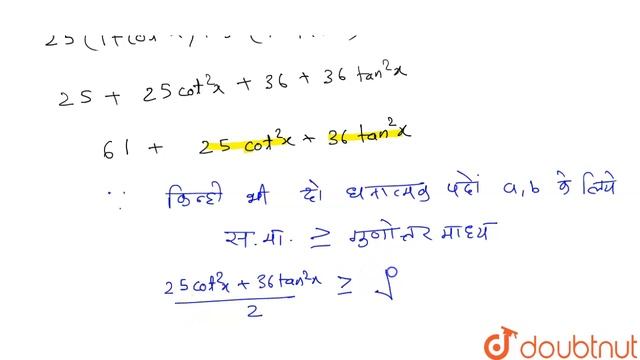 25 + 25 cot²x + 36 + 36 tan²x
61 + 25 cot²x + 36 tan²x
∵ किन्ही भी दो धनात्मक पदों a, b के लिये
स.मा. ≥ गुणोत्तर माध्य
(25cot²x + 36tan²x)/2 ≥
doubtnut